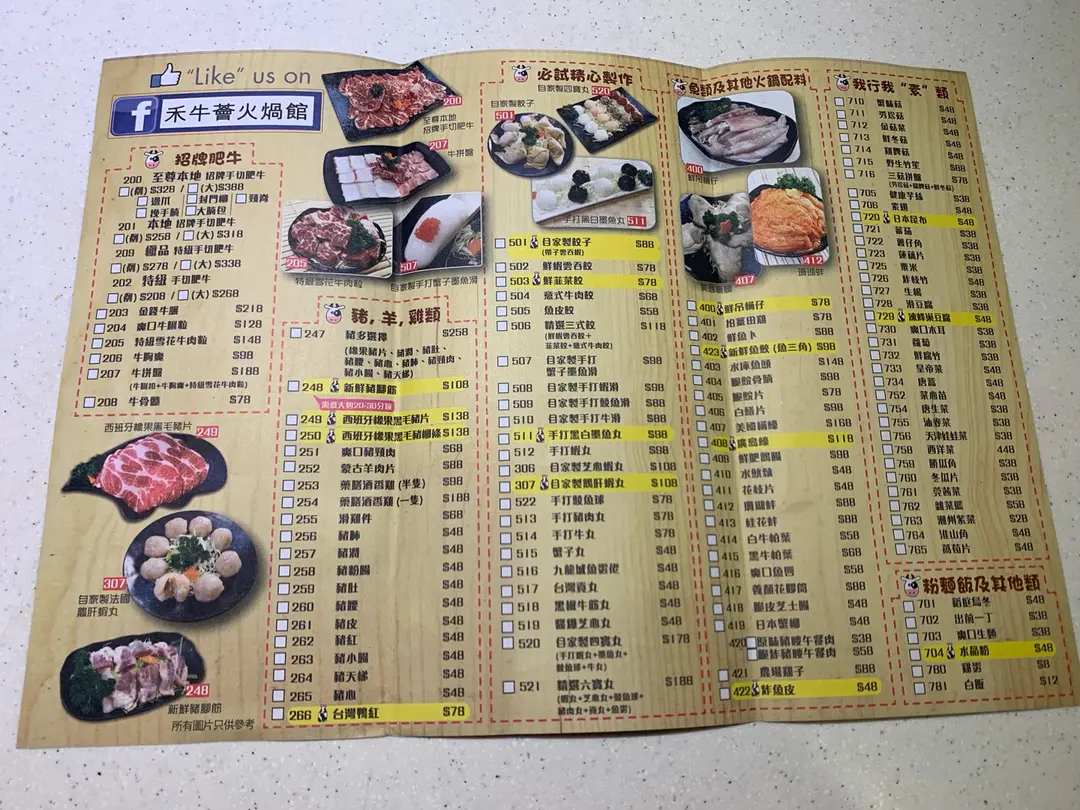 "Like" us on
f 禾牛薈火焗館
招牌肥牛
200 至尊本地 招牌手切肥牛
(例) $328 / (大) $388
邊爪 封門柳 頸脊
挽手腩 大腩包
201 本地 招牌手切肥牛
(例) $258 / (大) $318
209 極品 特級手切肥牛
(例) $278 / (大) $338
202 特級 手切肥牛
(例) $208 / (大) $268
203 金錢牛𦟌 $218
204 爽口牛脷粒 $128
205 特級雪花牛肉粒 $148
206 牛胸爽 $98
207 牛拼盤 $188
208 牛骨髓 $78
西班牙橡果黑毛豬片 249
307
自家製法國
鵝肝蝦丸
248
新鮮豬腳筋
所有圖片只供參考
200
至尊本地
招牌手切肥牛
207
牛拼盤
205
特級雪花牛肉粒
507
自家製手打蟹子墨魚滑
豬, 羊, 雞類
247 豬多選擇 $258
(橡果豬片、豬膶、豬肚、
豬腰、豬心、豬肺、豬頸肉、
豬小腸、豬天梯)
248 新鮮豬腳筋 $108
需煲大約20-30分鐘
249 西班牙橡果黑毛豬片 $138
250 西班牙橡果黑毛豬柳條 $138
251 爽口豬頸肉 $68
252 蒙古羊肉片 $88
253 藥膳酒香雞 (半隻) $98
254 藥膳酒香雞 (一隻) $188
255 滑雞件 $68
256 豬肺 $48
257 豬膶 $48
258 豬粉腸 $48
259 豬肚 $48
260 豬腰 $48
261 豬皮 $48
262 豬紅 $48
263 豬小腸 $48
264 豬天梯 $48
265 豬心 $48
266 台灣鴨紅 $78
必試精心製作
自家製四寶丸 520
自家製餃子
501
手打黑白墨魚丸 511
501 自家製餃子 $88
(帶子雲吞蝦)
502 鮮蝦雲吞餃 $78
503 鮮韮菜餃 $78
504 意式牛肉餃 $68
505 魚皮餃 $58
506 精選三式餃 $118
(鮮蝦雲吞餃+
韮菜餃+意式牛肉餃)
507 自家製手打 $98
蟹子墨魚滑
508 自家製手打蝦滑 $88
509 自家製手打鯪魚滑 $88
510 自家製手打牛滑 $88
511 手打黑白墨魚丸 $98
512 手打蝦丸 $98
306 自家製芝心蝦丸 $108
307 自家製鵝肝蝦丸 $108
522 手打鯪魚球 $78
513 手打豬肉丸 $78
514 手打牛丸 $78
515 蟹子丸 $48
516 九龍城魚蛋佬 $48
517 台灣貢丸 $48
518 黑椒牛筋丸 $48
519 芝心丸 $48
520 自家製四寶丸 $178
(手打蝦丸+墨魚丸+
鯪魚球+牛丸)
521 精選六寶丸 $188
(蝦丸+芝心丸+鯪魚球+
豬肉丸+貢丸+魚蛋)
魚類及其他火鍋配料
400
鮮吊桶仔
407
412
珊瑚蚌
400 鮮吊桶仔 $78
401 $78
402 鮮魚卜 $38
423 新鮮魚餃 (魚三角) $98
403 水庫魚頭 $148
404 脆鯇骨腩 $98
405 脆鯇片 $78
406 白鱔片 $98
407 美國桶蠔 $168
408 廣島蠔 $118
409 鮮肥鵝腸 $88
410 水魷鬚 $48
411 花枝片 $48
412 珊瑚蚌 $88
413 桂花蚌 $88
414 白牛柏葉 $58
415 黑牛柏葉 $68
416 爽口魚唇 $58
417 養顏花膠筒 $88
418 脆皮芝士腸 $48
419 日本蟹柳 $48
420 原味豬㬹午餐肉 $38
脆炸豬㬹午餐肉 $58
421 農場雞子 $88
422 炸魚皮 $48
我行我"素"類
710 蟹味菇 $48
711 秀珍菇 $48
712 金菇菜 $48
713 鮮冬菇 $48
714 雞髀菇 $48
715 野生竹笙 $88
716 三菇拼盤 $78
(秀珍菇+雞髀菇+鮮冬菇)
705 健康芋絲 $38
706 素翅 $48
720 日本昆布 $48
721 蕃茄 $38
722 薯仔角 $38
723 蓮藕片 $38
725 粟米 $38
726 炸枝竹 $48
727 生根 $48
728 滑豆腐 $38
729 凍蜂巢豆腐 $48
730 爽口木耳 $38
731 蘿蔔 $38
732 鮮腐竹 $38
733 皇帝菜 $38
734 唐蒿 $38
752 菜心苗 $38
754 唐生菜 $38
755 油麥菜 $38
756 天津娃娃菜 $38
758 西洋菜 $48
759 勝瓜角 $38
760 冬瓜片 $38
761 莞茜菜 $38
762 雜菜籃 $58
763 潮州紫菜 $28
764 淮山角 $48
765 茼蒿片 $48
粉麵飯及其他類
701 稻庭烏冬 $48
702 出前一丁 $38
703 爽口生麵 $38
704 水晶粉 $48
780 雞蛋 $8
781 白飯 $12